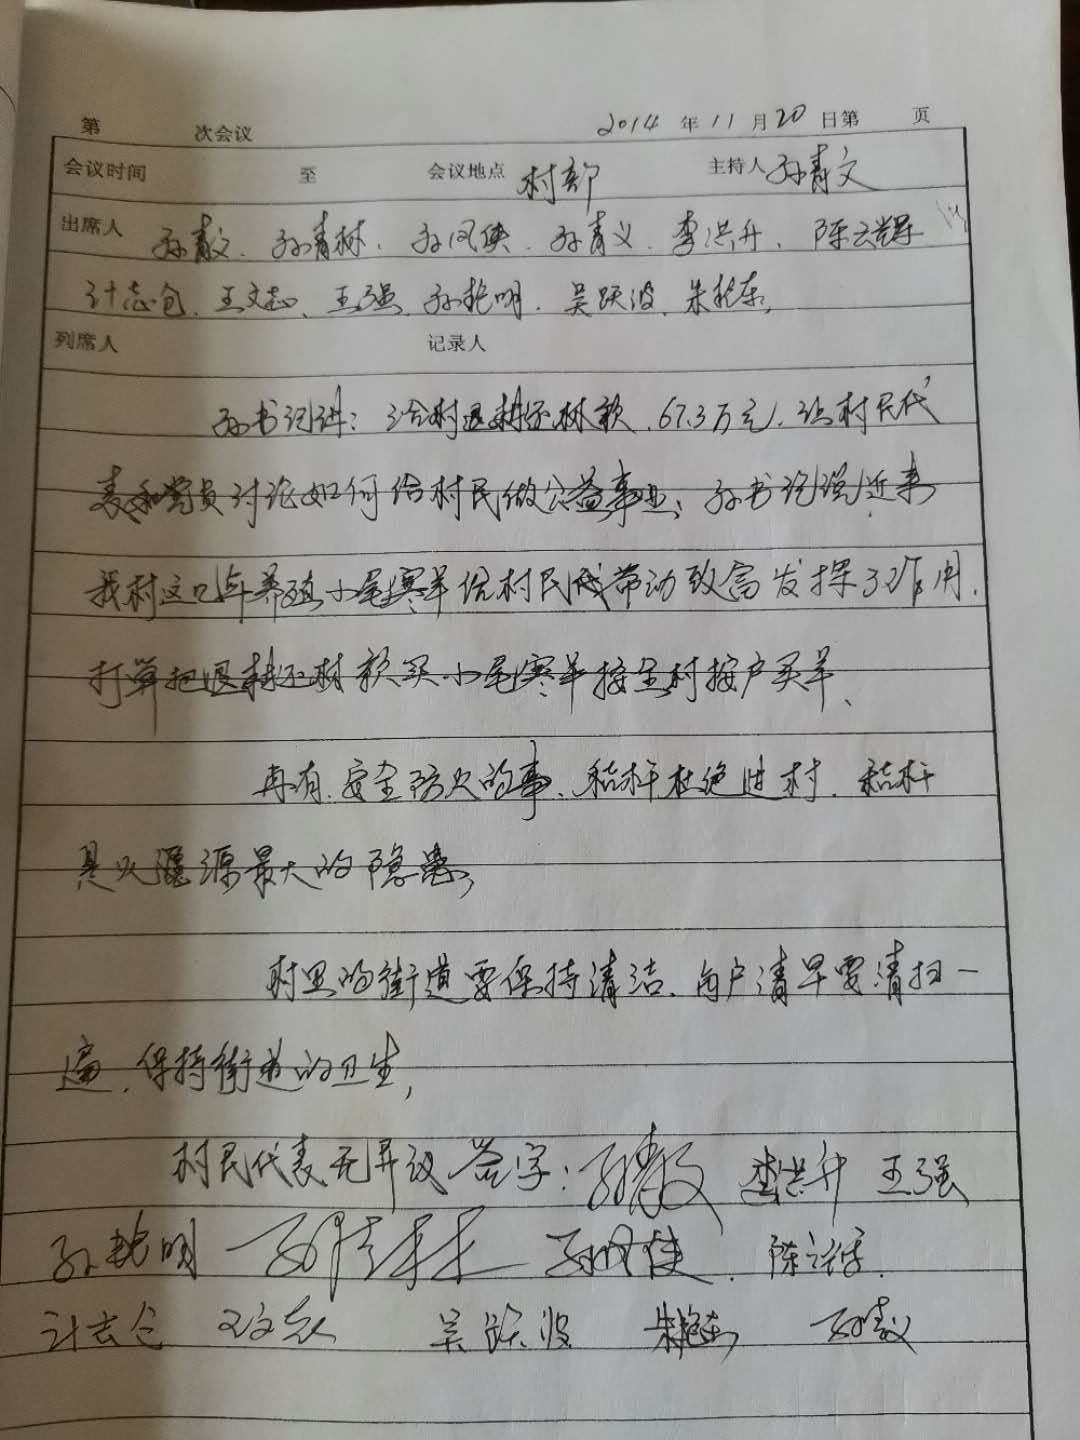 第 次会议 2014 年 11 月 20 日第 页
会议时间 至 会议地点 村部 主持人 孙青文
出席人 孙青文、孙青林、孙凤侠、孙青义、李洪升、陈云辉
计志仓、王文志、王强、孙艳明、吴跃波、朱艳东
列席人 记录人
孙书记讲：给村退耕还林款67.3万元，让村民代
表和党员讨论如何给村民做公益事业，孙书记说近来
我村这几年养殖小尾寒羊给村民代带动致富发挥了作用，
打算把退耕还林款买小尾寒羊按全村按户买羊、
再有安全防火的事、秸杆杜绝进村、秸杆
是火源最大的隐患，
村里的街道要保持清洁、每户清早要清扫一
遍、保持街道的卫生，
村民代表无异议 签字：孙青文 李洪升 王强
孙艳明 孙青林 孙凤侠、陈云辉
计志仓 王文志 吴跃波 朱艳东 孙青义